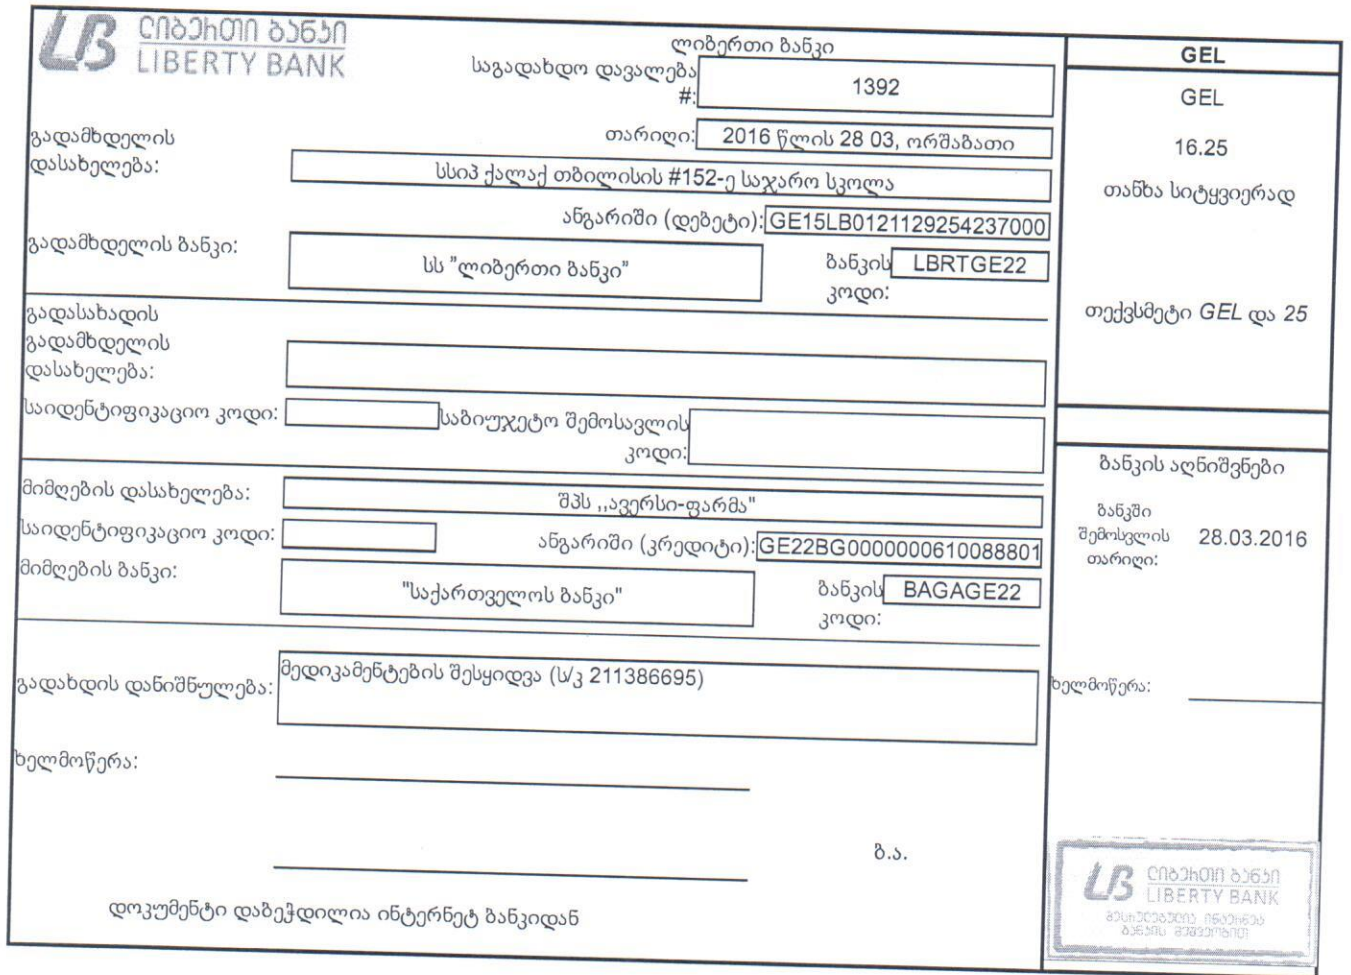 ლიბერთი ბანკი
LIBERTY BANK
ლიბერთი ბანკი
საგადახდო დავალება #: 1392
თარიღი: 2016 წლის 28 03, ორშაბათი
გადამხდელის დასახელება: სსიპ ქალაქ თბილისის #152-ე საჯარო სკოლა
ანგარიში (დებეტი): GE15LB0121129254237000
გადამხდელის ბანკი: სს "ლიბერთი ბანკი"
ბანკის კოდი: LBRTGE22
გადასახადის გადამხდელის დასახელება:
საიდენტიფიკაციო კოდი:
საბიუჯეტო შემოსავლის კოდი:
მიმღების დასახელება: შპს ,,ავერსი-ფარმა"
საიდენტიფიკაციო კოდი:
ანგარიში (კრედიტი): GE22BG0000000610088801
მიმღების ბანკი: "საქართველოს ბანკი"
ბანკის კოდი: BAGAGE22
გადახდის დანიშნულება: მედიკამენტების შესყიდვა (ს/კ 211386695)
ხელმოწერა:
ბ.ა.
დოკუმენტი დაბეჭდილია ინტერნეტ ბანკიდან
GEL
GEL
16.25
თანხა სიტყვიერად
თექვსმეტი GEL და 25
ბანკის აღნიშვნები
ბანკში შემოსვლის თარიღი: 28.03.2016
ხელმოწერა:
ლიბერთი ბანკი
LIBERTY BANK
შესრულებულია ინტერნეტ
ბანკის მეშვეობით